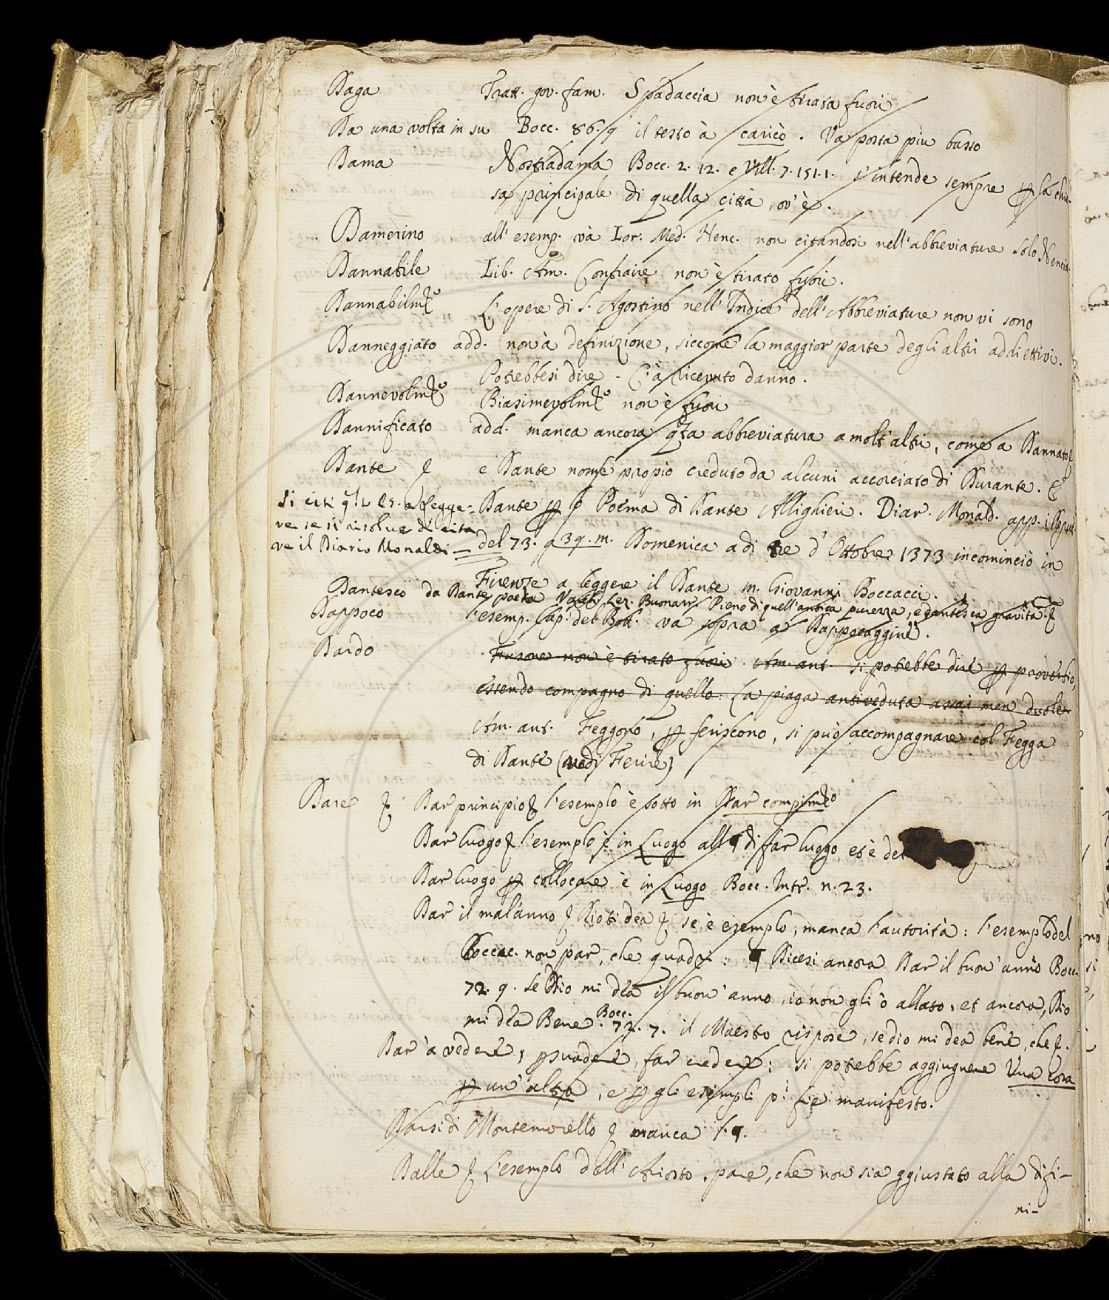 Daga Tratt. gov. fam. Spadaccia non è tirata fuori
Da una volta in su Bocc. 86. 9 il testo à carico. Va posta più basso
Dama Nostradama Bocc. 2. 12. e Vill. 7. 151. 1. s'intende sempre p la chie-
sa principale di quella città, ov' è.
Damerino all' esemp. và Lor. Med. Nenc. non citandosi nell' abbreviature solo Nencia
Dannabile Lib. Am. Confraire non è tirato fuori.
Dannabilmte L' opere di S. Agostino nell' Indice dell' Abbreviature non vi sono
Danneggiato add. non à definizione, siccome la maggior parte degli altri addiettivi.
Potrebbesi dire - C' à ricevuto danno.
Dannevolmte Biasimevolmte non è fuori
Dannificato add. manca ancora qta abbreviatura a molt' altri, come a Dannato
Dante e Dante nome propio creduto da alcuni accorciato di Durante.
Dante p Poema di Dante Allighieri. Diar. Monald. app.
Si citi
ve se si risolve di cita
re il Diario Monaldi
del 73. a 39. m. Domenica a dì tre d' Ottobre 1373 incominciò in
Firenze a leggere il Dante m. Giovanni Boccacci.
Dantesco da Dante poeta Lez. Buonarr. Pieno di quell' antica purezza, e dantesca gravità.
Dappoco l' esemp. Cap. del Bott. va sopra a Dappocaggine.
Dardo non è tirato fuori. Am. ant. si potrebbe dire p proverbio,
essendo compagno di quello. La piaga antiveduta assai men duole
Am. ant. Feggono, p feriscono, si può accompagnare col Fegga
di Dante (vedi Ferire)
Dare Dar principio l' esemplo è sotto in Dar compimto
Dar luogo l' esemplo è in Luogo all § di far luogo et è del
Dar luogo p collocare è in Luogo Bocc. Intr. n. 23.
Dar il malanno Dio ti dea se, è esemplo, manca l' autorità: l' esemplo del
Boccac. non par, che quadri: § Dicesi ancora Dar il buon' anno Bocc.
72. 9. Se Dio mi dea il buon' anno, io non gli ò allato, et ancora, Dio
mi dea Bene. Bocc. 72. 7. il Maestro rispose, se dio mi dea bene, che
Dar' a vedere, psuadere, far credere: si potrebbe aggiugnere Una cosa
p un' altra, e p gli esempli p' si è manifesto.
Darsi di Montemorello manca l' §.
Dalle L' esemplo dell' Ariosto, pare, che non sia aggiustato alla difi-
ni-